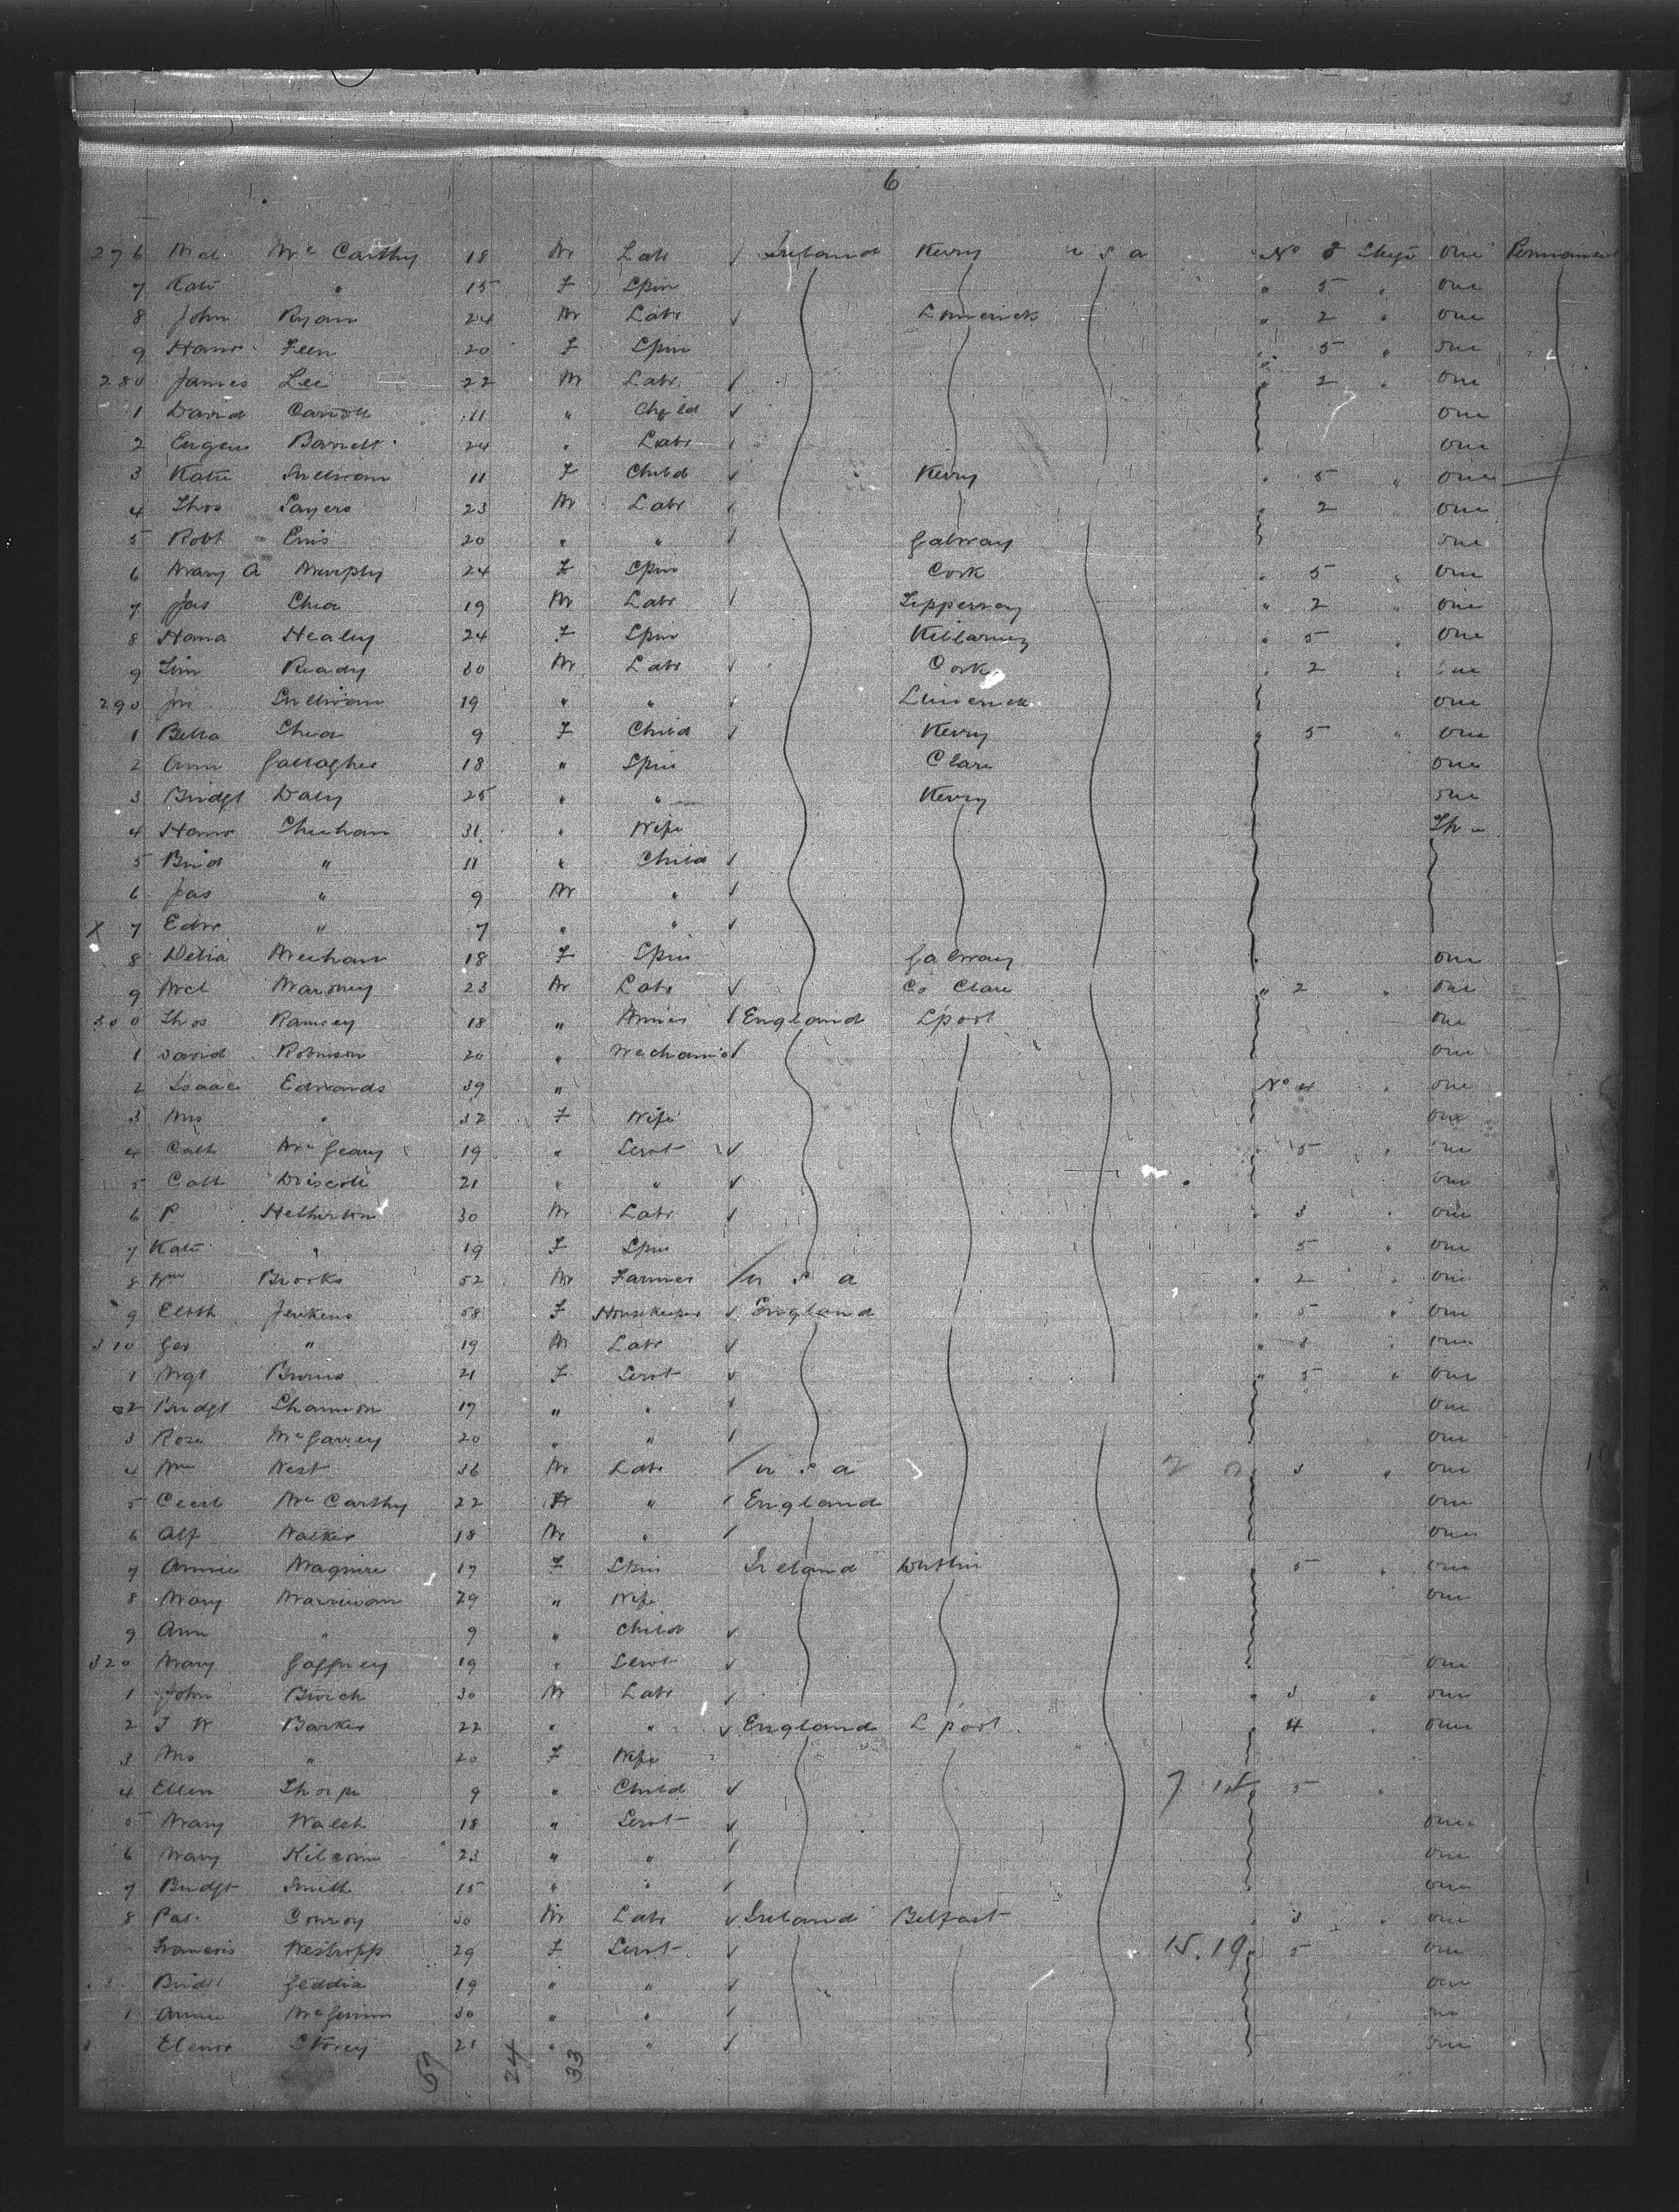 6
276 Mcl Mc Carthy 18 M Labr Ireland Kerry U S A No 5 One Permanent
7 Kate " 15 F Spin " 5 " one
8 John Ryan 24 M Labr Limerick " 2 " one
9 Hanr Feen 20 F Spin " 5 " one
280 James Lee 22 M Labr " 2 " one
1 David Carroll 11 " Child one
2 Eugene Barrett 24 " Labr one
3 Katie Sullivan 11 F Child Kerry " 5 " one
4 Thos Sayers 23 M Labr " 2 " one
5 Robt 20 " " Galway one
6 Mary A Murphy 24 F Spin Cork " 5 " one
7 Jas Shea 19 M Labr Tipperary " 2 " one
8 Hana Healey 24 F Spin Killarney " 5 " one
9 Tim Ready 30 M Labr Cork " 2 " one
290 Sullivan 19 " " Limerick one
1 Bella Shea 9 F Child Kerry " 5 " one
2 Ann Gallagher 18 " Spin Clare one
3 Bridgt Daly 25 " " Kerry one
4 Hanr Sheehan 31 " Wife
5 Brid " 11 " Child
6 Jas " 9 M "
X 7 Edw " 7 " "
8 Delia Meehan 18 F Spin Galway one
9 Mcl Maroney 23 M Labr Co Clare " 2 " one
300 Thos Ramsey 18 " England Lpool one
1 David Robinson 20 " Mechanic one
2 Isaac Edwards 39 " No 4 " one
3 Mrs " 32 F Wife one
4 Cath Mc Geary 19 " Servt " 5 " one
5 Cath Driscoll 21 " " one
6 P Hetherton 30 M Labr " 3 " one
7 Kate " 19 F Spin 5 " one
8 Wm Brooks 52 M Farmer U S A " 2 " one
9 Elizth Jenkens 58 F Housekeeper England " 5 " one
310 Geo " 19 M Labr " 3 " one
1 Mgt Burns 21 F Servt " 5 " one
2 Bridgt Shannon 17 " " one
3 Rose McGarrey 20 " " one
4 Wm West 36 M Labr U S A " 3 " one
5 Cecil Mc Carthy 22 " England one
6 Alf Walker 18 M " one
7 Annie Maguire 17 F Spin Ireland Dublin " 5 " one
8 Mary 29 " Wife one
9 Ann " 9 " Child
320 Mary Gaffney 19 " Servt one
1 John Burch 30 M Labr " 3 " one
2 J W Barker 22 " " England L pool " 4 " one
3 Mrs " 20 F Wife
4 Ellen Thorpe 9 " Child " 5 "
5 Mary Walsh 18 " Servt one
6 Mary 23 " " one
7 Bridgt Smith 15 " " one
8 Pat. Conroy 30 M Labr Ireland Belfast " 3 " one
Francis Westropp 29 F Servt 15.19 " 5 one
Bridt Geddia 19 " " one
1 Annie McGuinn 30 " " one
Storey 21 " " one
57 24 33